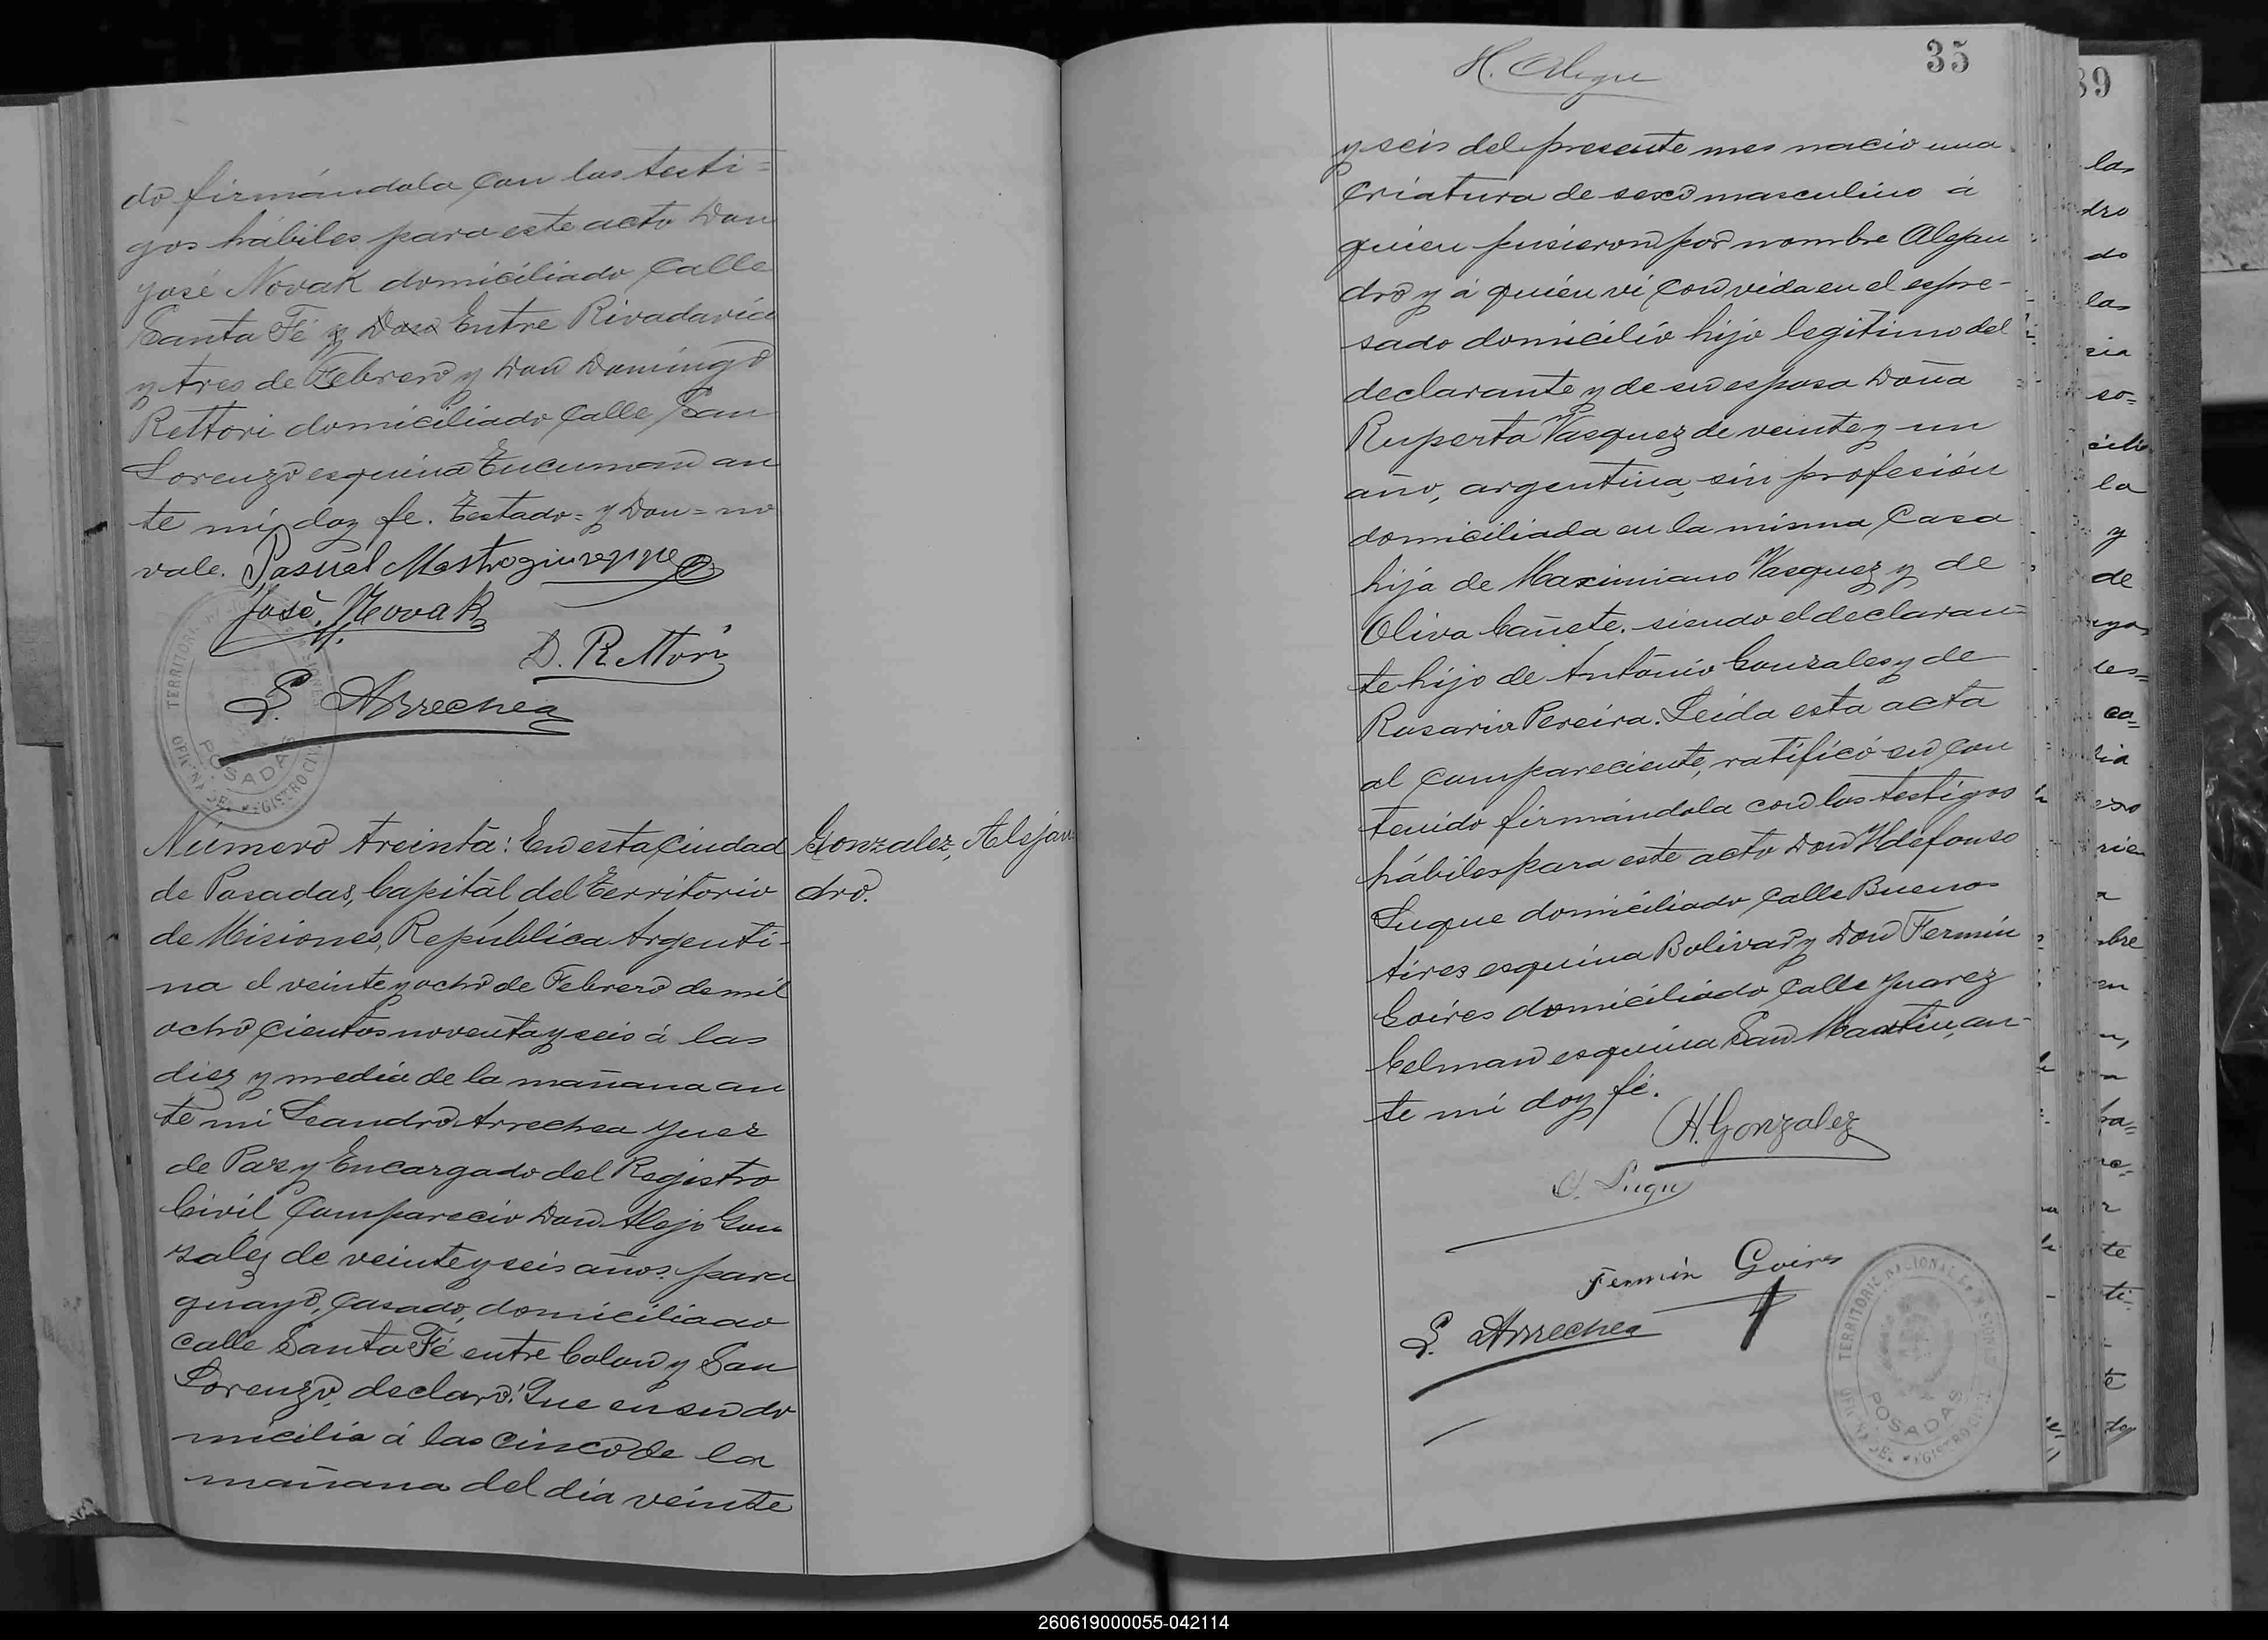 do firmándola con los testi=
gos hábiles para este acto Don
José Novak domiciliado calle
Santa Fé y Don Entre Rivadavia
y tres de Febrero y Don Domingo
Rettori domiciliado calle San
Lorenzo esquina Tucuman an
te mi, doy fe. Testado = y Don = no
vale. Pasual Mastrogiuseppe
José Novak
D. Rettori
L. Arrechea
TERRITORIO
POSADAS
Número treinta: En esta Ciudad
de Posadas, Capital del Territorio
de Misiones, República Argenti-
na el veinte y ocho de Febrero de mil
ocho cientos noventa y seis á las
diez y media de la mañana an
te mi Leandro Arrechea Juez
de Paz y Encargado del Registro
Civil, compareció Don Alejo Gon
zalez de veinte y seis años, para
guayo, casado, domiciliado
calle Santa Fé entre Colon y San
Lorenzo, declaró: Que en su do
micilio á las cinco de la
mañana del dia veinte
Gonzalez, Alejan
dro.
35
y seis del presente mes nació una
criatura de sexo masculino á
quien pusieron por nombre Alejan
dro y á quien vi con vida en el espre-
sado domicilio hijo legítimo del
declarante y de su esposa Doña
Ruperta Vasquez de veinte y un
año, argentina, sin profesión
domiciliada en la misma casa
hija de Maximiano Vasquez y de
Oliva Cañete. siendo el declaran-
te hijo de Antonio Gonzales y de
Rosario Pereira. Leida esta acta
al compareciente, ratificó su con
tenido firmándola con los testigos
hábiles para este acto Don Ildefonso
Luque domiciliado calle Buenos
Aires esquina Bolivar y Don Fermin
Goires domiciliado calle Juarez
Celman esquina San Martin, an-
te mi doy fé.
A. Gonzalez
Luque
Fermin Goires
L. Arrechea
TERRITORIO NACIONAL DE MISIONES
POSADAS
OFICINA DEL REGISTRO CIVIL
89
las
dro
do
las
cia
so=
cilio
la
y
de
les=
ca=
exo
rien
a
bre
en
te
ti=
doy
260619000055-042114